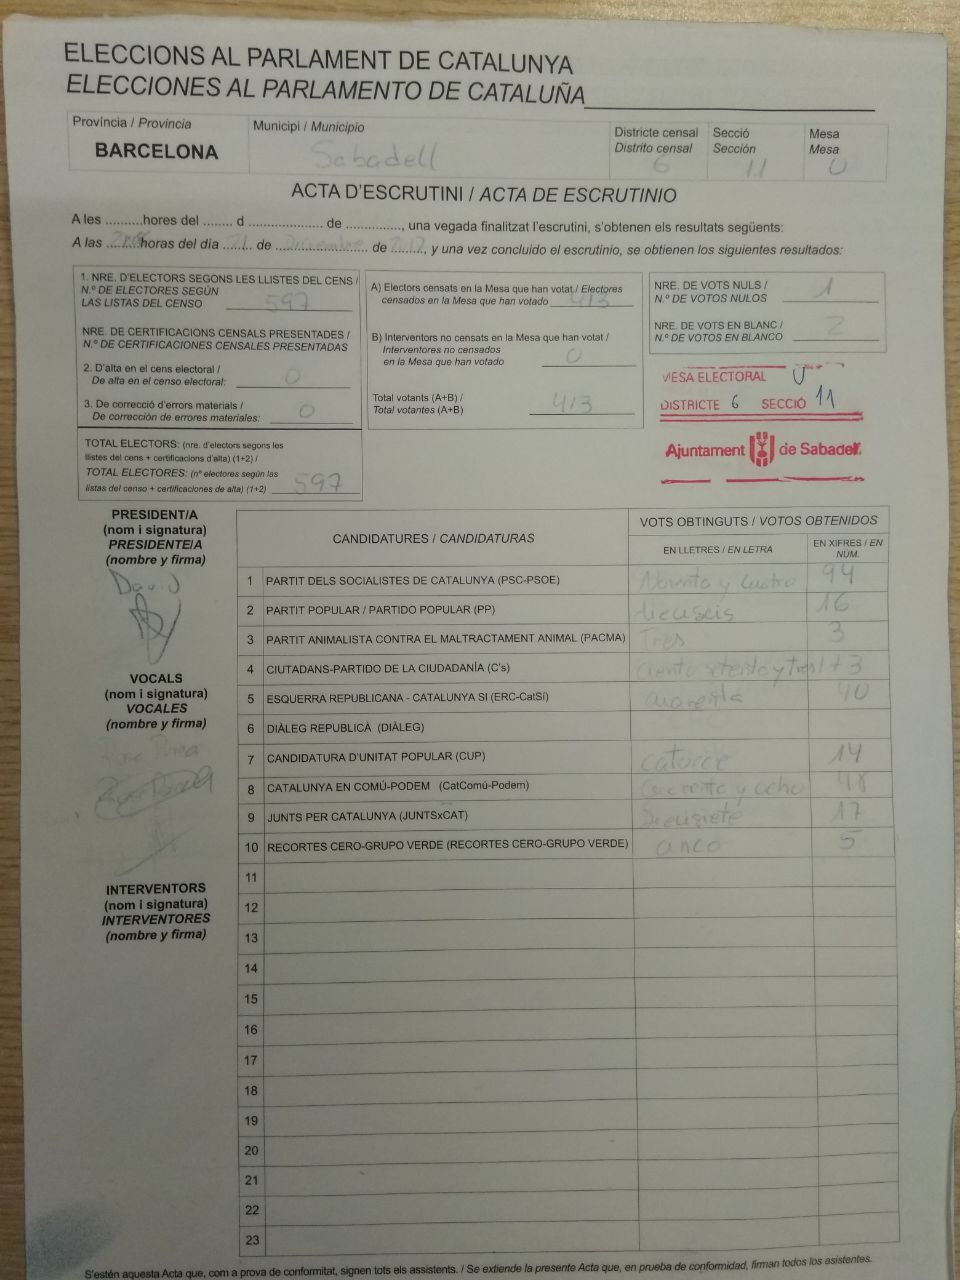 ELECCIONS AL PARLAMENT DE CATALUNYA
ELECCIONES AL PARLAMENTO DE CATALUÑA
Provincia / Provincia
BARCELONA
Municipi / Municipio
Sabadell
Districte censal
Distrito censal
6
Secció
Sección
11
Mesa
Mesa
U
ACTA D'ESCRUTINI / ACTA DE ESCRUTINIO
A les ..........hores del ........ d .................... de ..............., una vegada finalitzat l'escrutini, s'obtenen els resultats següents:
A las ..........horas del día ........ de Diciembre de 2017, y una vez concluido el escrutinio, se obtienen los siguientes resultados:
1. NRE. D'ELECTORS SEGONS LES LLISTES DEL CENS /
N.º DE ELECTORES SEGÚN
LAS LISTAS DEL CENSO 597
NRE. DE CERTIFICACIONS CENSALS PRESENTADES /
N.º DE CERTIFICACIONES CENSALES PRESENTADAS
2. D'alta en el cens electoral /
De alta en el censo electoral: 0
3. De correcció d'errors materials /
De corrección de errores materiales: 0
TOTAL ELECTORS: (nre. d'electors segons les
llistes del cens + certificacions d'alta) (1+2) /
TOTAL ELECTORES: (nº electores según las
listas del censo + certificaciones de alta) (1+2) 597
A) Electors censats en la Mesa que han votat / Electores
censados en la Mesa que han votado 413
B) Interventors no censats en la Mesa que han votat /
Interventores no censados
en la Mesa que han votado 0
Total votants (A+B) /
Total votantes (A+B) 413
NRE. DE VOTS NULS /
N.º DE VOTOS NULOS 1
NRE. DE VOTS EN BLANC /
N.º DE VOTOS EN BLANCO 2
MESA ELECTORAL U
DISTRICTE 6 SECCIÓ 11
Ajuntament de Sabadell
PRESIDENT/A
(nom i signatura)
PRESIDENTE/A
(nombre y firma)
David
VOCALS
(nom i signatura)
VOCALES
(nombre y firma)
INTERVENTORS
(nom i signatura)
INTERVENTORES
(nombre y firma)
CANDIDATURES / CANDIDATURAS
VOTS OBTINGUTS / VOTOS OBTENIDOS
EN LLETRES / EN LETRA
EN XIFRES / EN NÚM.
1 PARTIT DELS SOCIALISTES DE CATALUNYA (PSC-PSOE) Noventa y cuatro 94
2 PARTIT POPULAR / PARTIDO POPULAR (PP) dieciseis 16
3 PARTIT ANIMALISTA CONTRA EL MALTRACTAMENT ANIMAL (PACMA) Tres 3
4 CIUTADANS-PARTIDO DE LA CIUDADANÍA (C's) ciento setenta y tres 173
5 ESQUERRA REPUBLICANA - CATALUNYA SI (ERC-CatSí) cuarenta 40
6 DIÀLEG REPUBLICÀ (DIÀLEG)
7 CANDIDATURA D'UNITAT POPULAR (CUP) catorce 14
8 CATALUNYA EN COMÚ-PODEM (CatComú-Podem) Cuarenta y ocho 48
9 JUNTS PER CATALUNYA (JUNTSxCAT) Diecisiete 17
10 RECORTES CERO-GRUPO VERDE (RECORTES CERO-GRUPO VERDE) cinco 5
11
12
13
14
15
16
17
18
19
20
21
22
23
S'estén aquesta Acta que, com a prova de conformitat, signen tots els assistents. / Se extiende la presente Acta que, en prueba de conformidad, firman todos los asistentes.